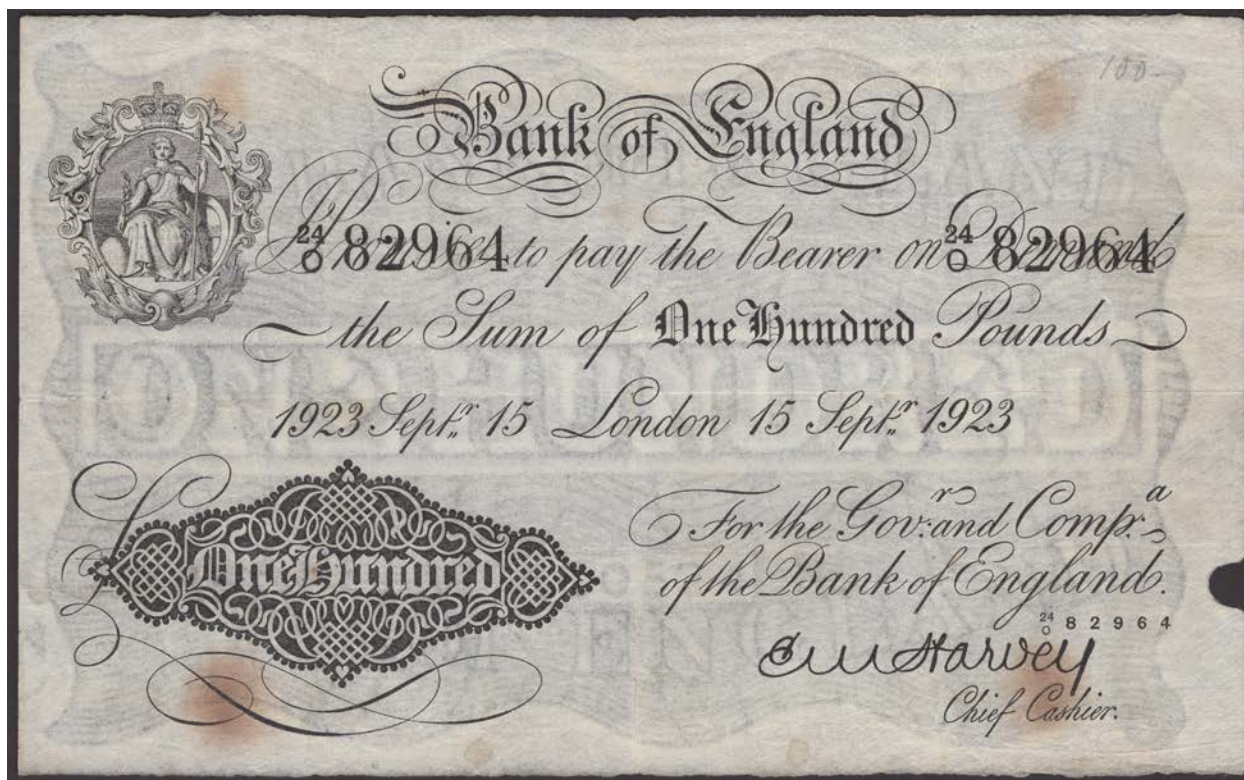 100
Bank of England
I Promise to pay the Bearer on Demand
24/O 82964 24/O 82964
the Sum of One Hundred Pounds
1923 Septr. 15 London 15 Septr. 1923
£ One Hundred
For the Govr. and Compa.
of the Bank of England.
24/O 82964
E M Harvey
Chief Cashier.